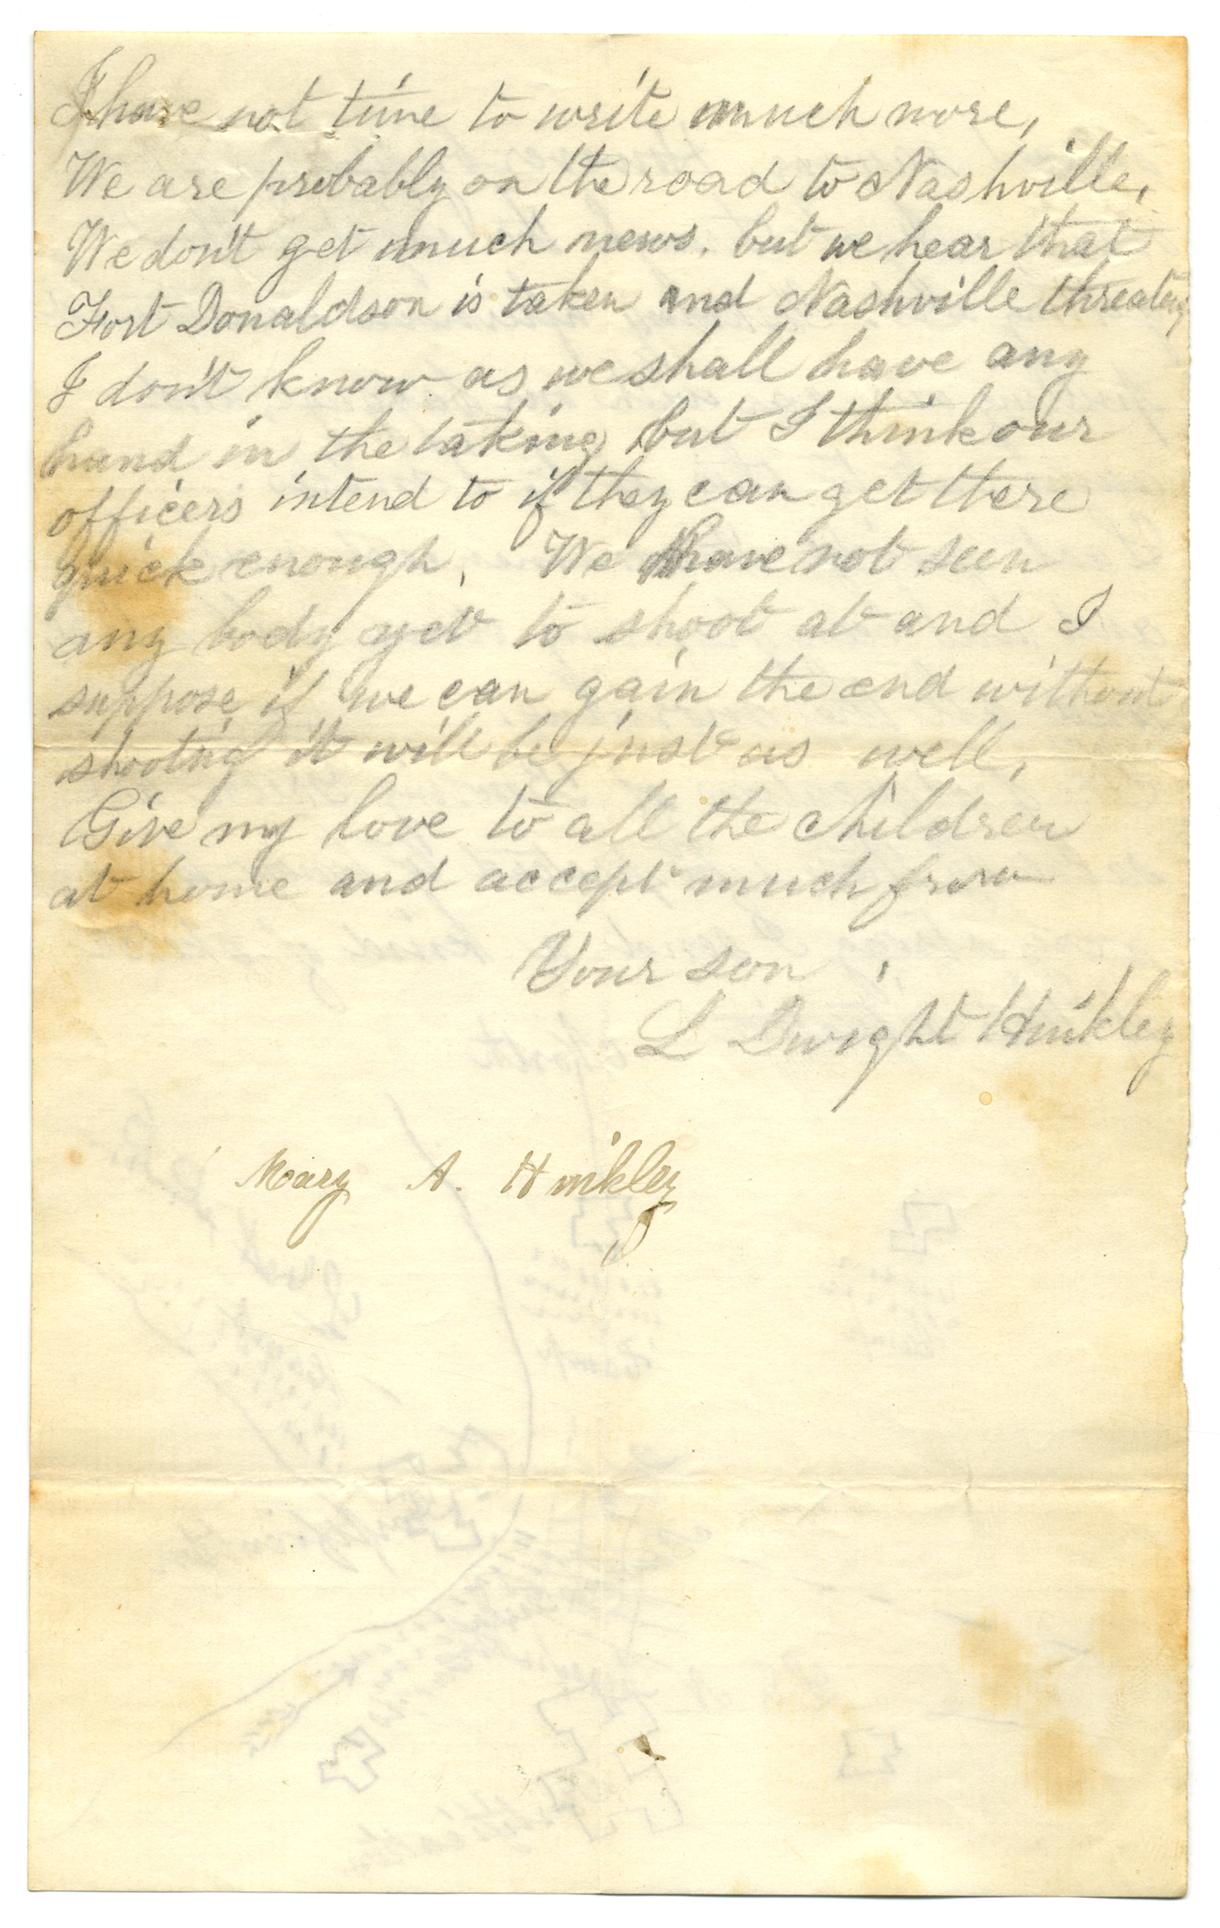 I have not time to write much more,
We are probably on the road to Nashville,
We don't get much news. but we hear that
Fort Donaldson is taken and Nashville
I don't know as we shall have any
hand in the taking but I think our
officers intend to if they can get there
quick enough. We have not seen
any body yet to shoot at and I
suppose if we can gain the end without
shooting it will be just as well,
Give my love to all the children
at home and accept much from
Your son,
L Dwight Hinkley
Mary A. Hinkley